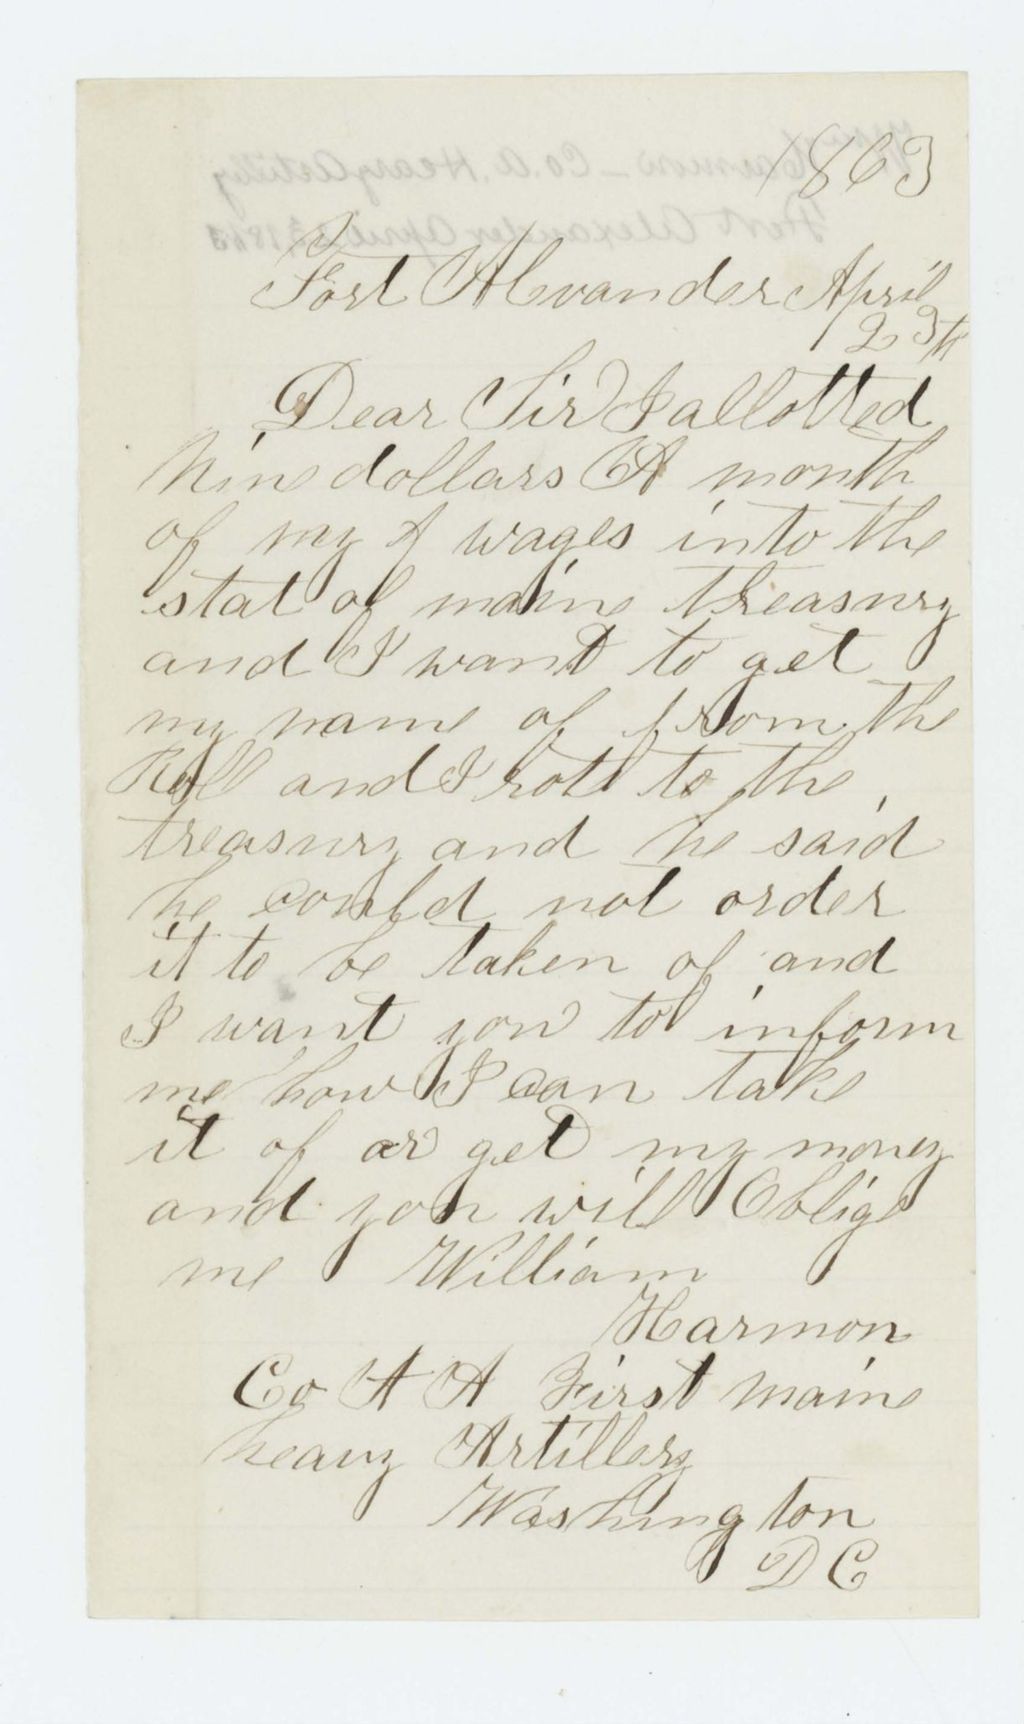 1863
Fort Alvander April
23th
Dear Sir I allotted
Nine dollars A month
of my wages into the
stat of maine treasury
and I want to get
my name of from the
Roll and I rote to the
treasury and he said
he could not order
it to be taken of and
I want you to inform
me how I can take
it of or get my money
and you will Oblige
me William
Harmon
Co A A First maine
heavy Artillery
Washington
D C